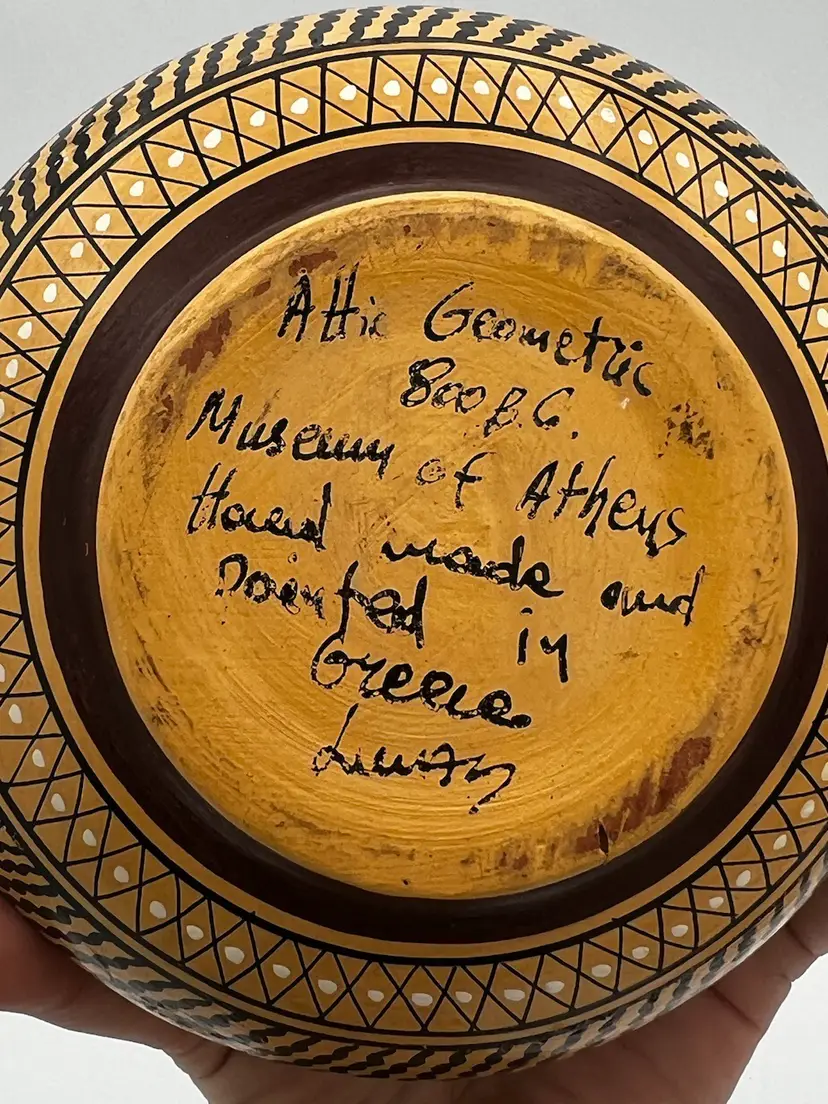 Attic Geometric
800 B.C.
Museum of Athens
Hand made and
Painted in
Greece